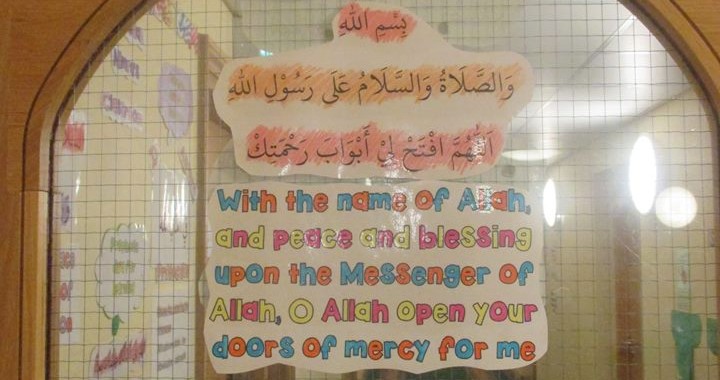 بِسْمِ اللهِ
وَالصَّلَاةُ وَالسَّلَامُ عَلَى رَسُوْلِ اللهِ
اَللّٰهُمَّ افْتَحْ لِيْ أَبْوَابَ رَحْمَتِكْ
With the name of Allah,
and peace and blessing
upon the Messenger of
Allah, O Allah open your
doors of mercy for me